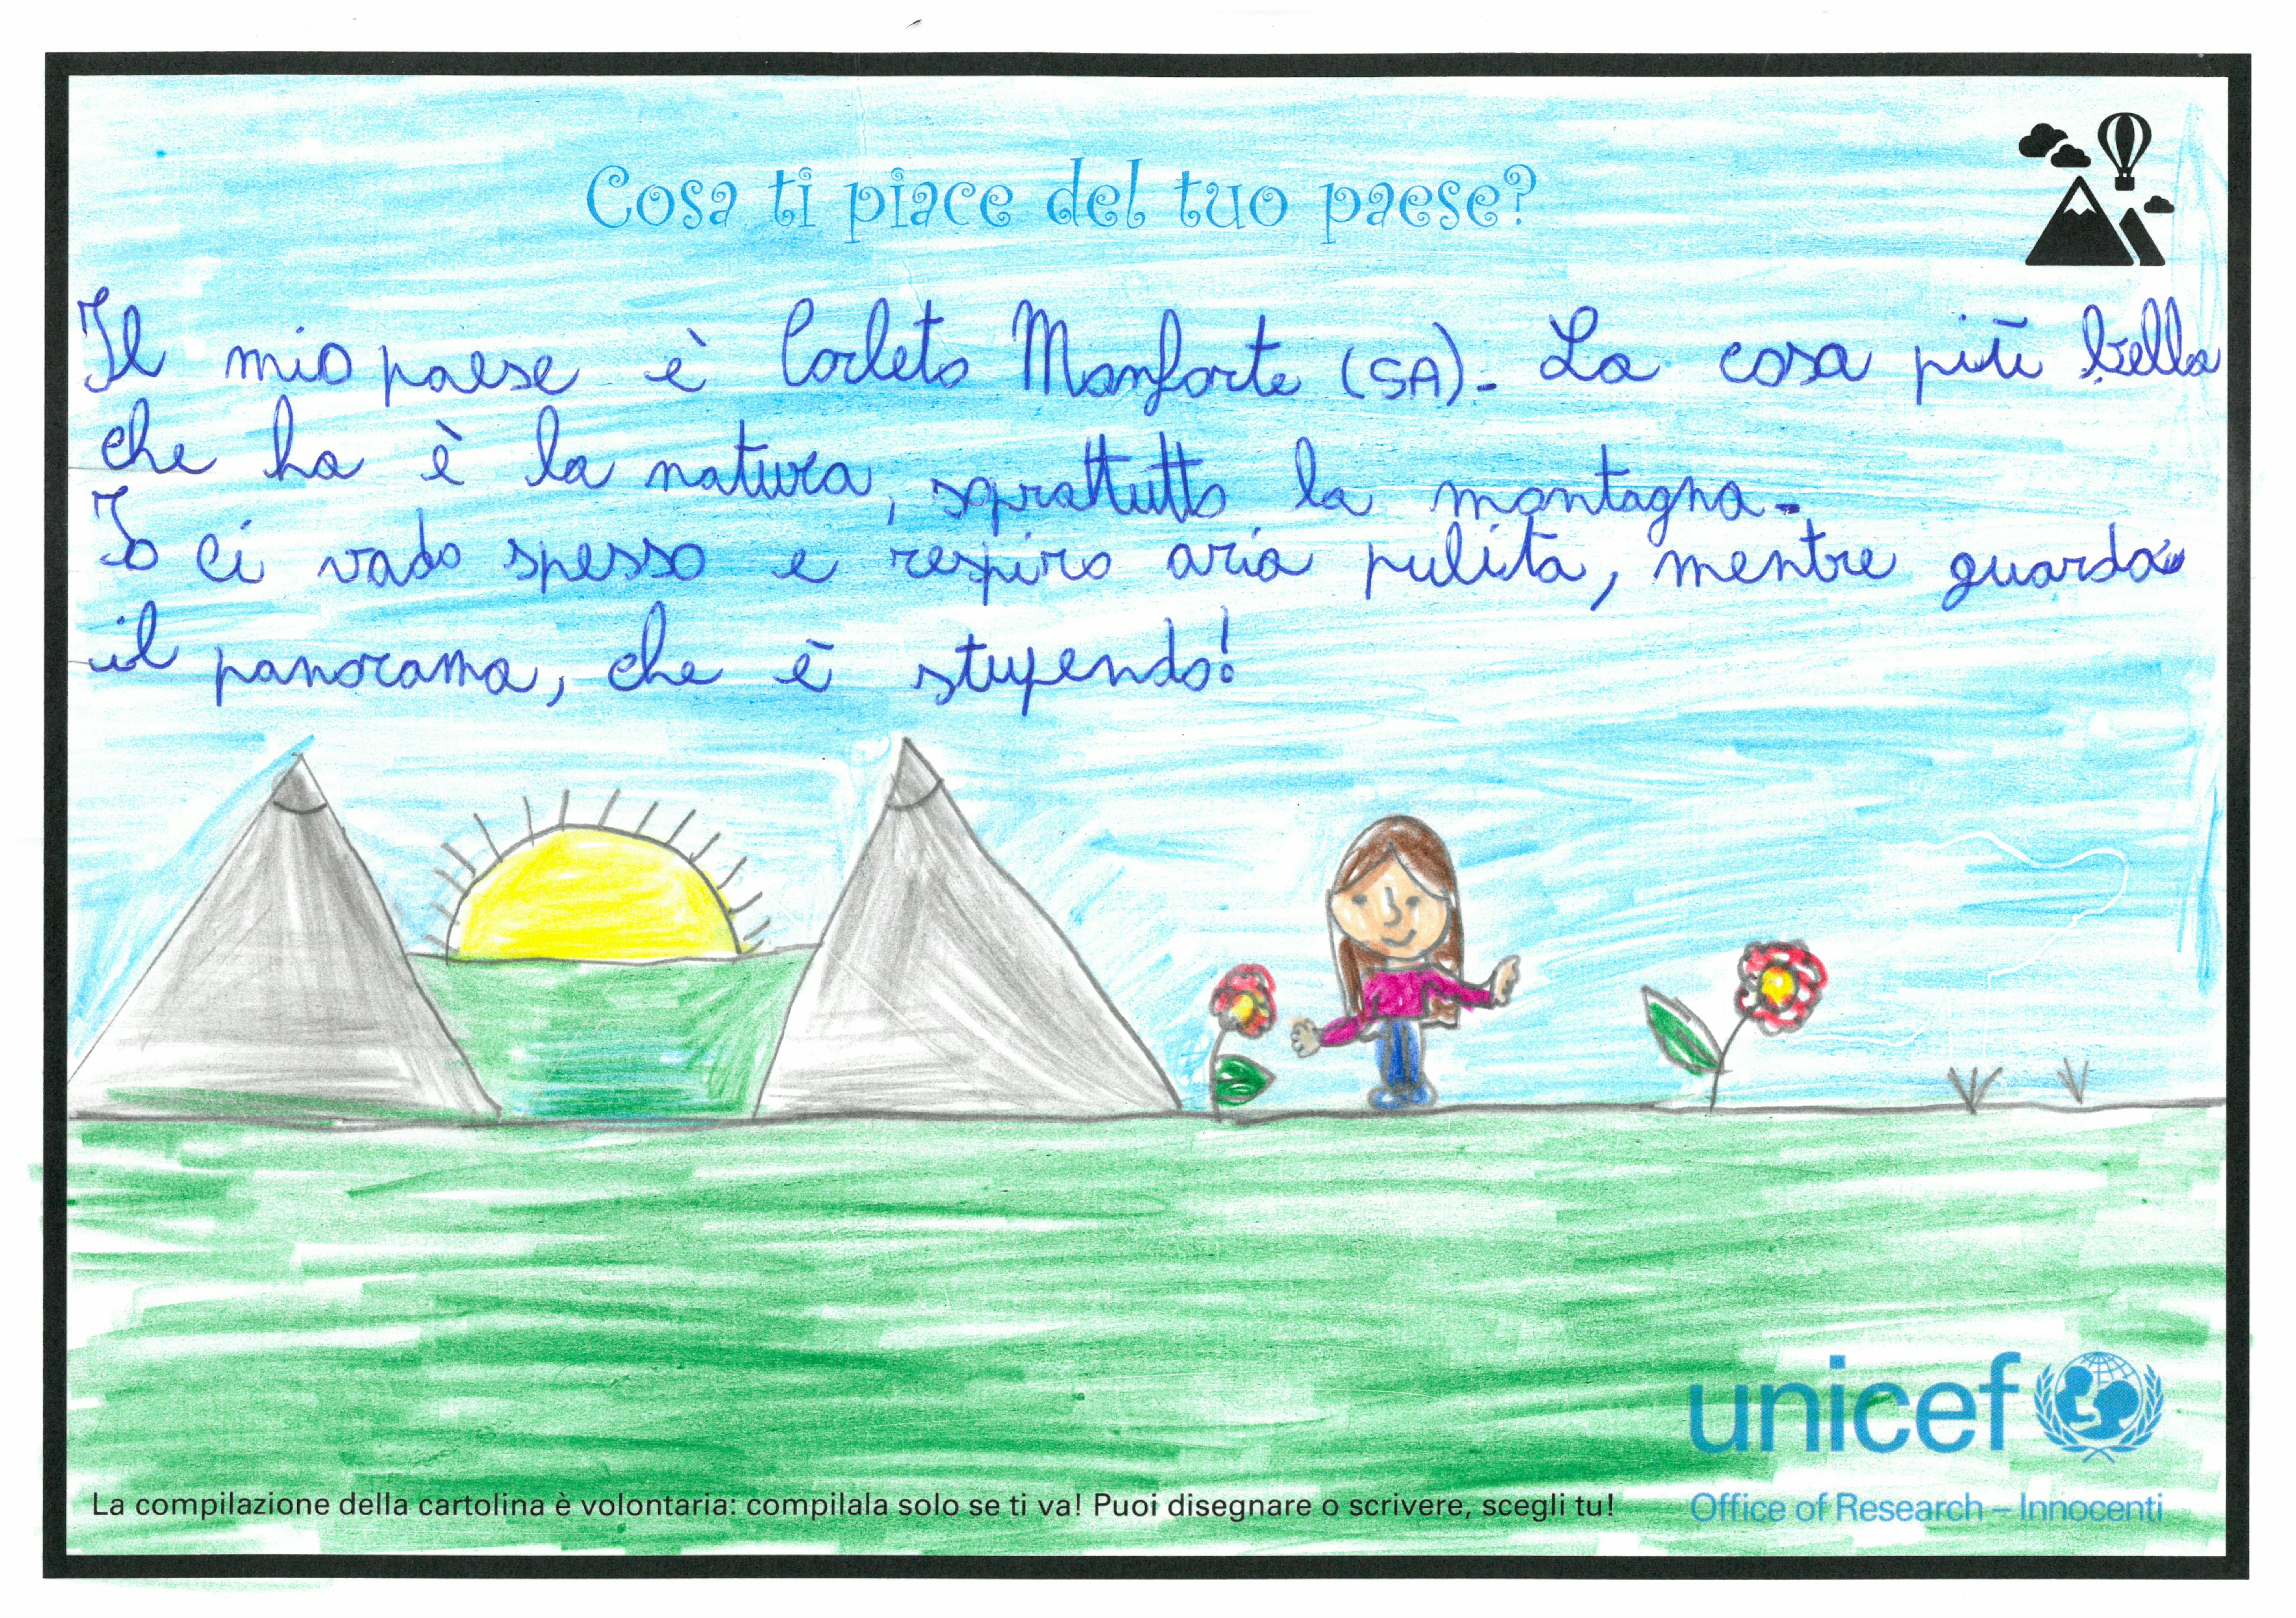 Cosa ti piace del tuo paese?
Il mio paese è Corleto Monforte (SA). La cosa più bella
che ha è la natura, soprattutto la montagna.
Io ci vado spesso e respiro aria pulita, mentre guardo
il panorama, che è stupendo!
unicef
La compilazione della cartolina è volontaria: compilala solo se ti va! Puoi disegnare o scrivere, scegli tu!
Office of Research – Innocenti